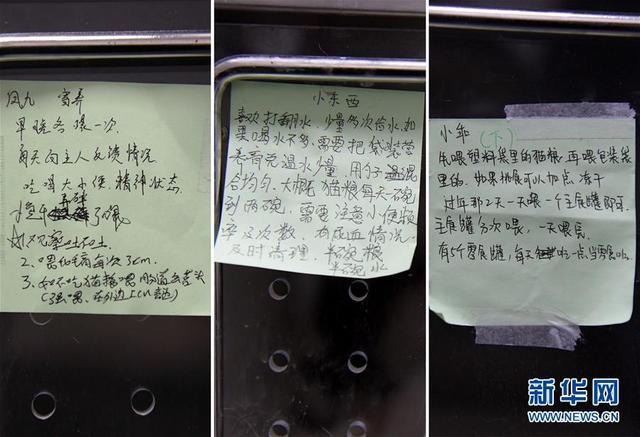 凤九 寄养
早晚各喂一次
每天向主人反馈情况
吃喝大小便,精神状态
2、喂化毛膏每次3cm.
3、如不吃猫粮喂肠道处方
小东西
喜欢打翻水,少量多次给水,如
果喝水不多,需要把袋装营
养膏兑温水少量,用勺子混
合均匀。大帅 猫粮每天一碗
到两碗,需要注意小便频
率及次数,有尿血情况
及时清理,半碗粮
半碗水
小乖(下)
先喂塑料袋里的猫粮,再喂包装袋
里的,如果挑食可以加点冻干
过年那2天一天喂一个主食罐即可
主食罐分次喂,一天喂完
有5个零食罐,每天吃一点,当零食吃。
新华网
WWW.NEWS.CN